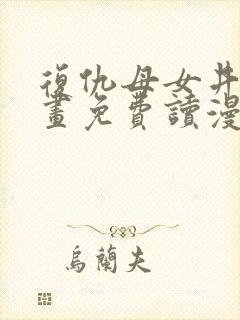 復仇母女丼
畫免費讀漫
烏蘭夫